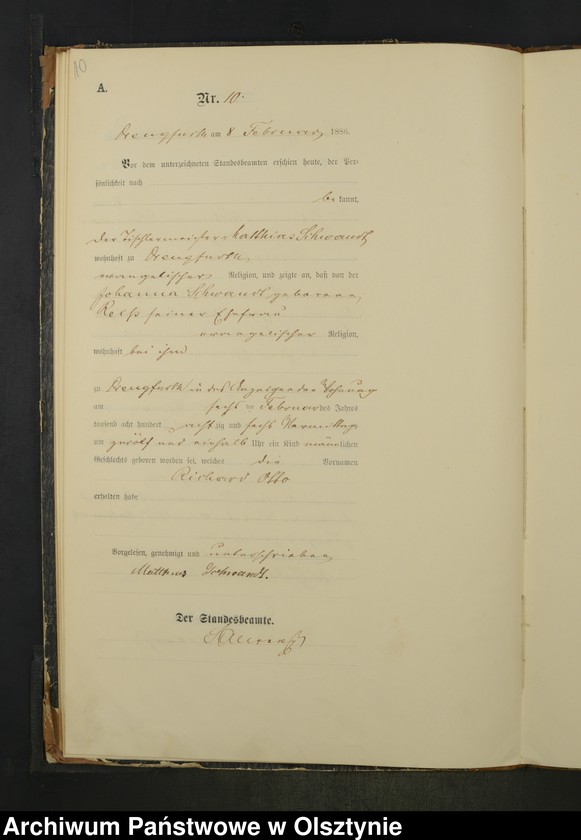 10
A.
Nr. 10.
Drengfurth am 8 Februar 1886.
Vor dem unterzeichneten Standesbeamten erschien heute, der Per-
sönlichkeit nach
be kannt,
der Tischlermeister Matthias Schwandt
wohnhaft zu Drengfurth
evangelischer Religion, und zeigte an, daß von der
Johanna Schwandt geborenen
seiner Ehefrau
evangelischer Religion,
wohnhaft bei ihm
zu Drengfurth in des Anzeigenden Wohnung
am sechs ten Februar des Jahres
tausend acht hundert achtzig und sechs Vormittags
um zwölf und einhalb Uhr ein Kind männlichen
Geschlechts geboren worden sei, welches die Vornamen
Richard Otto
erhalten habe
Vorgelesen, genehmigt und unterschrieben
Matthias Schwandt.
Der Standesbeamte.
Archiwum Państwowe w Olsztynie